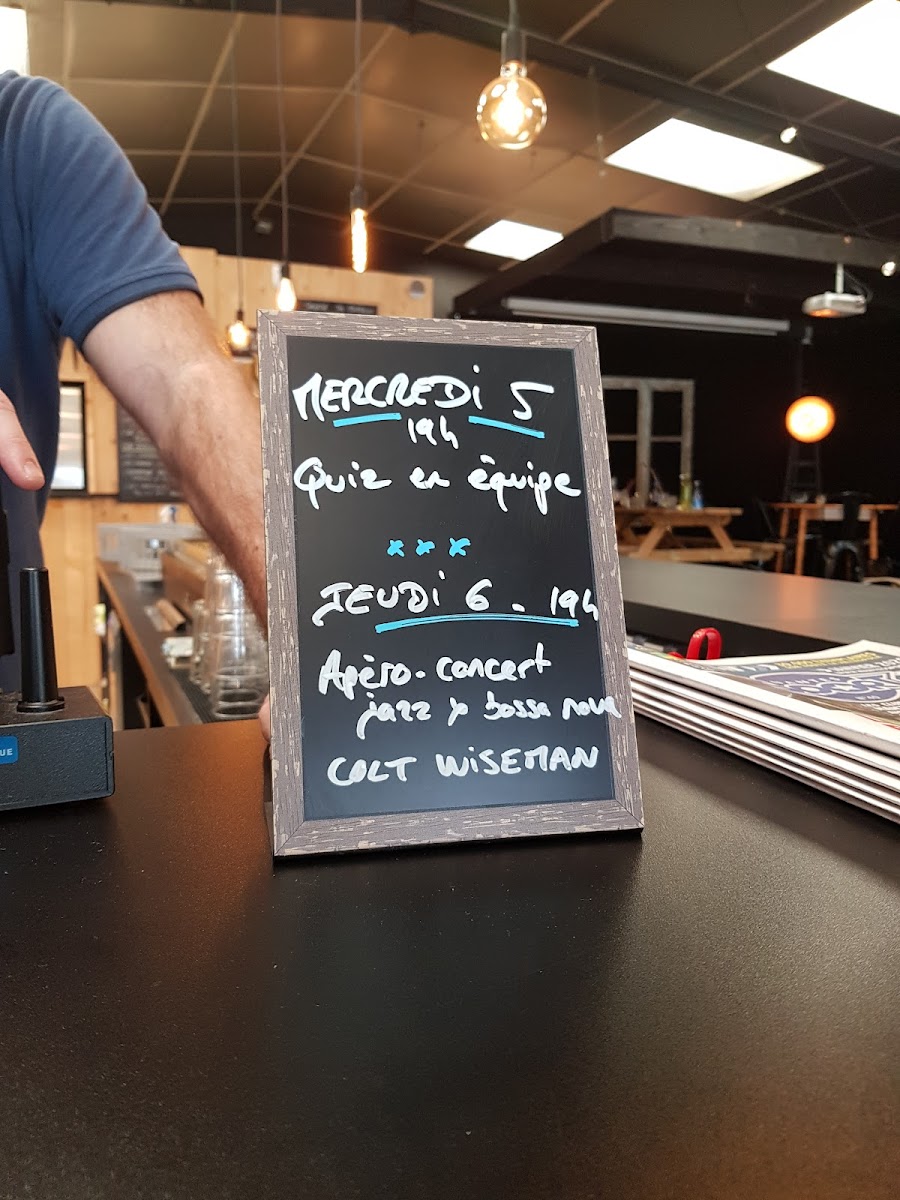 MERCREDi 5
19h
Quiz en équipe
***
JEUDi 6 - 19h
Apéro-concert
jazz & bossa nova
COLT WiSEMAN
UE